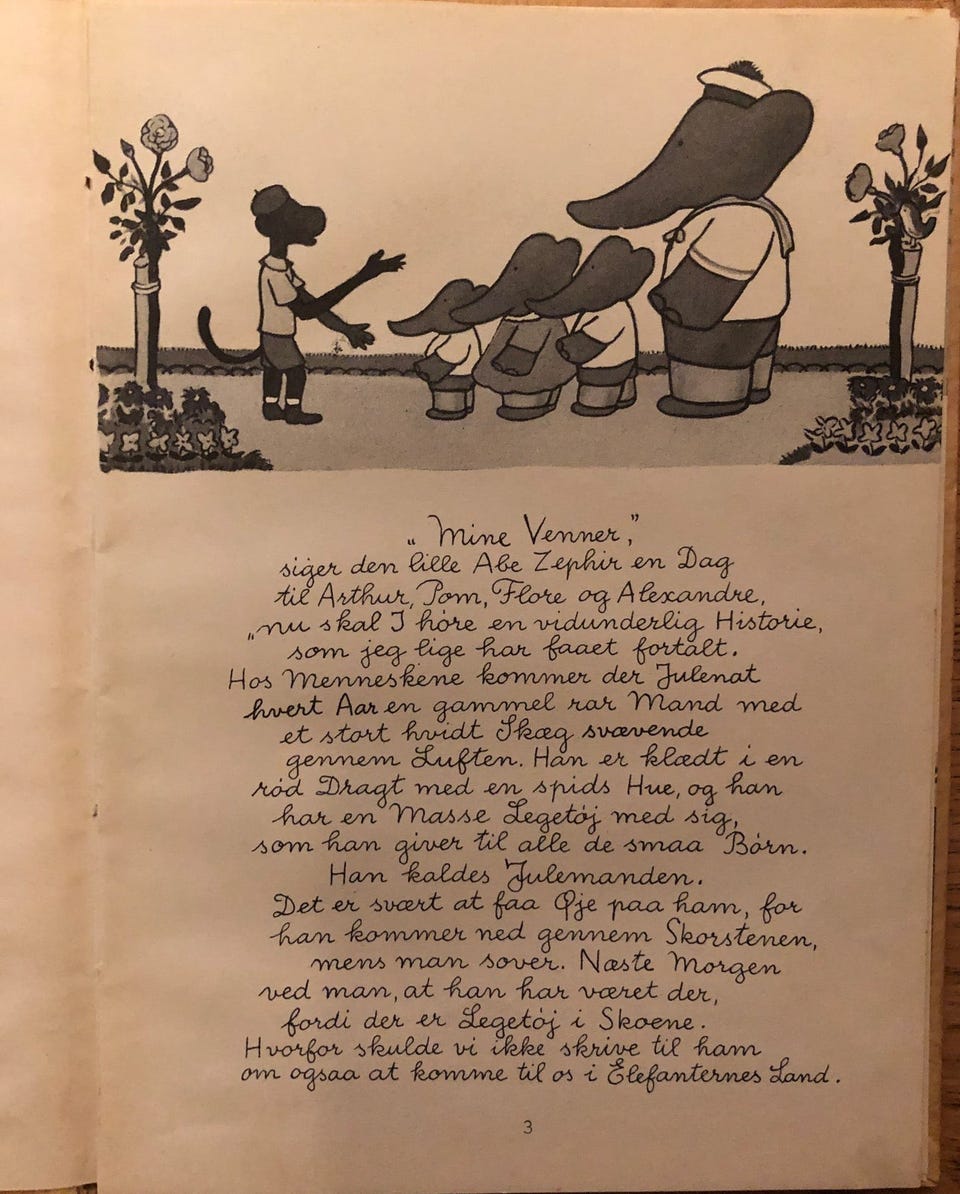 „Mine Venner,”
siger den lille Abe Zephir en Dag
til Arthur, Pom, Flore og Alexandre,
„nu skal I høre en vidunderlig Historie,
som jeg lige har faaet fortalt.
Hos Menneskene kommer der Julenat
hvert Aar en gammel rar Mand med
et stort hvidt Skæg svævende
gennem Luften. Han er klædt i en
rød Dragt med en spids Hue, og han
har en Masse Legetøj med sig,
som han giver til alle de smaa Børn.
Han kaldes Julemanden.
Det er svært at faa Øje paa ham, for
han kommer ned gennem Skorstenen,
mens man sover. Næste Morgen
ved man, at han har været der,
fordi der er Legetøj i Skoene.
Hvorfor skulde vi ikke skrive til ham
om ogsaa at komme til os i Elefanternes Land.
3